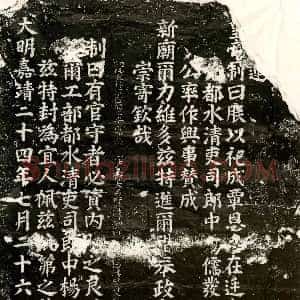 制曰朕以祀成覃恩在廷
部都水清吏司郎中儒發
公率作興事贊成
新廟爾力維多茲特進爾中政
崇寄欽哉
制曰有官守者必資內之良
爾工部都水清吏司郎中楊
茲特封為宜人佩茲之
大明嘉靖二十四年七月二十六